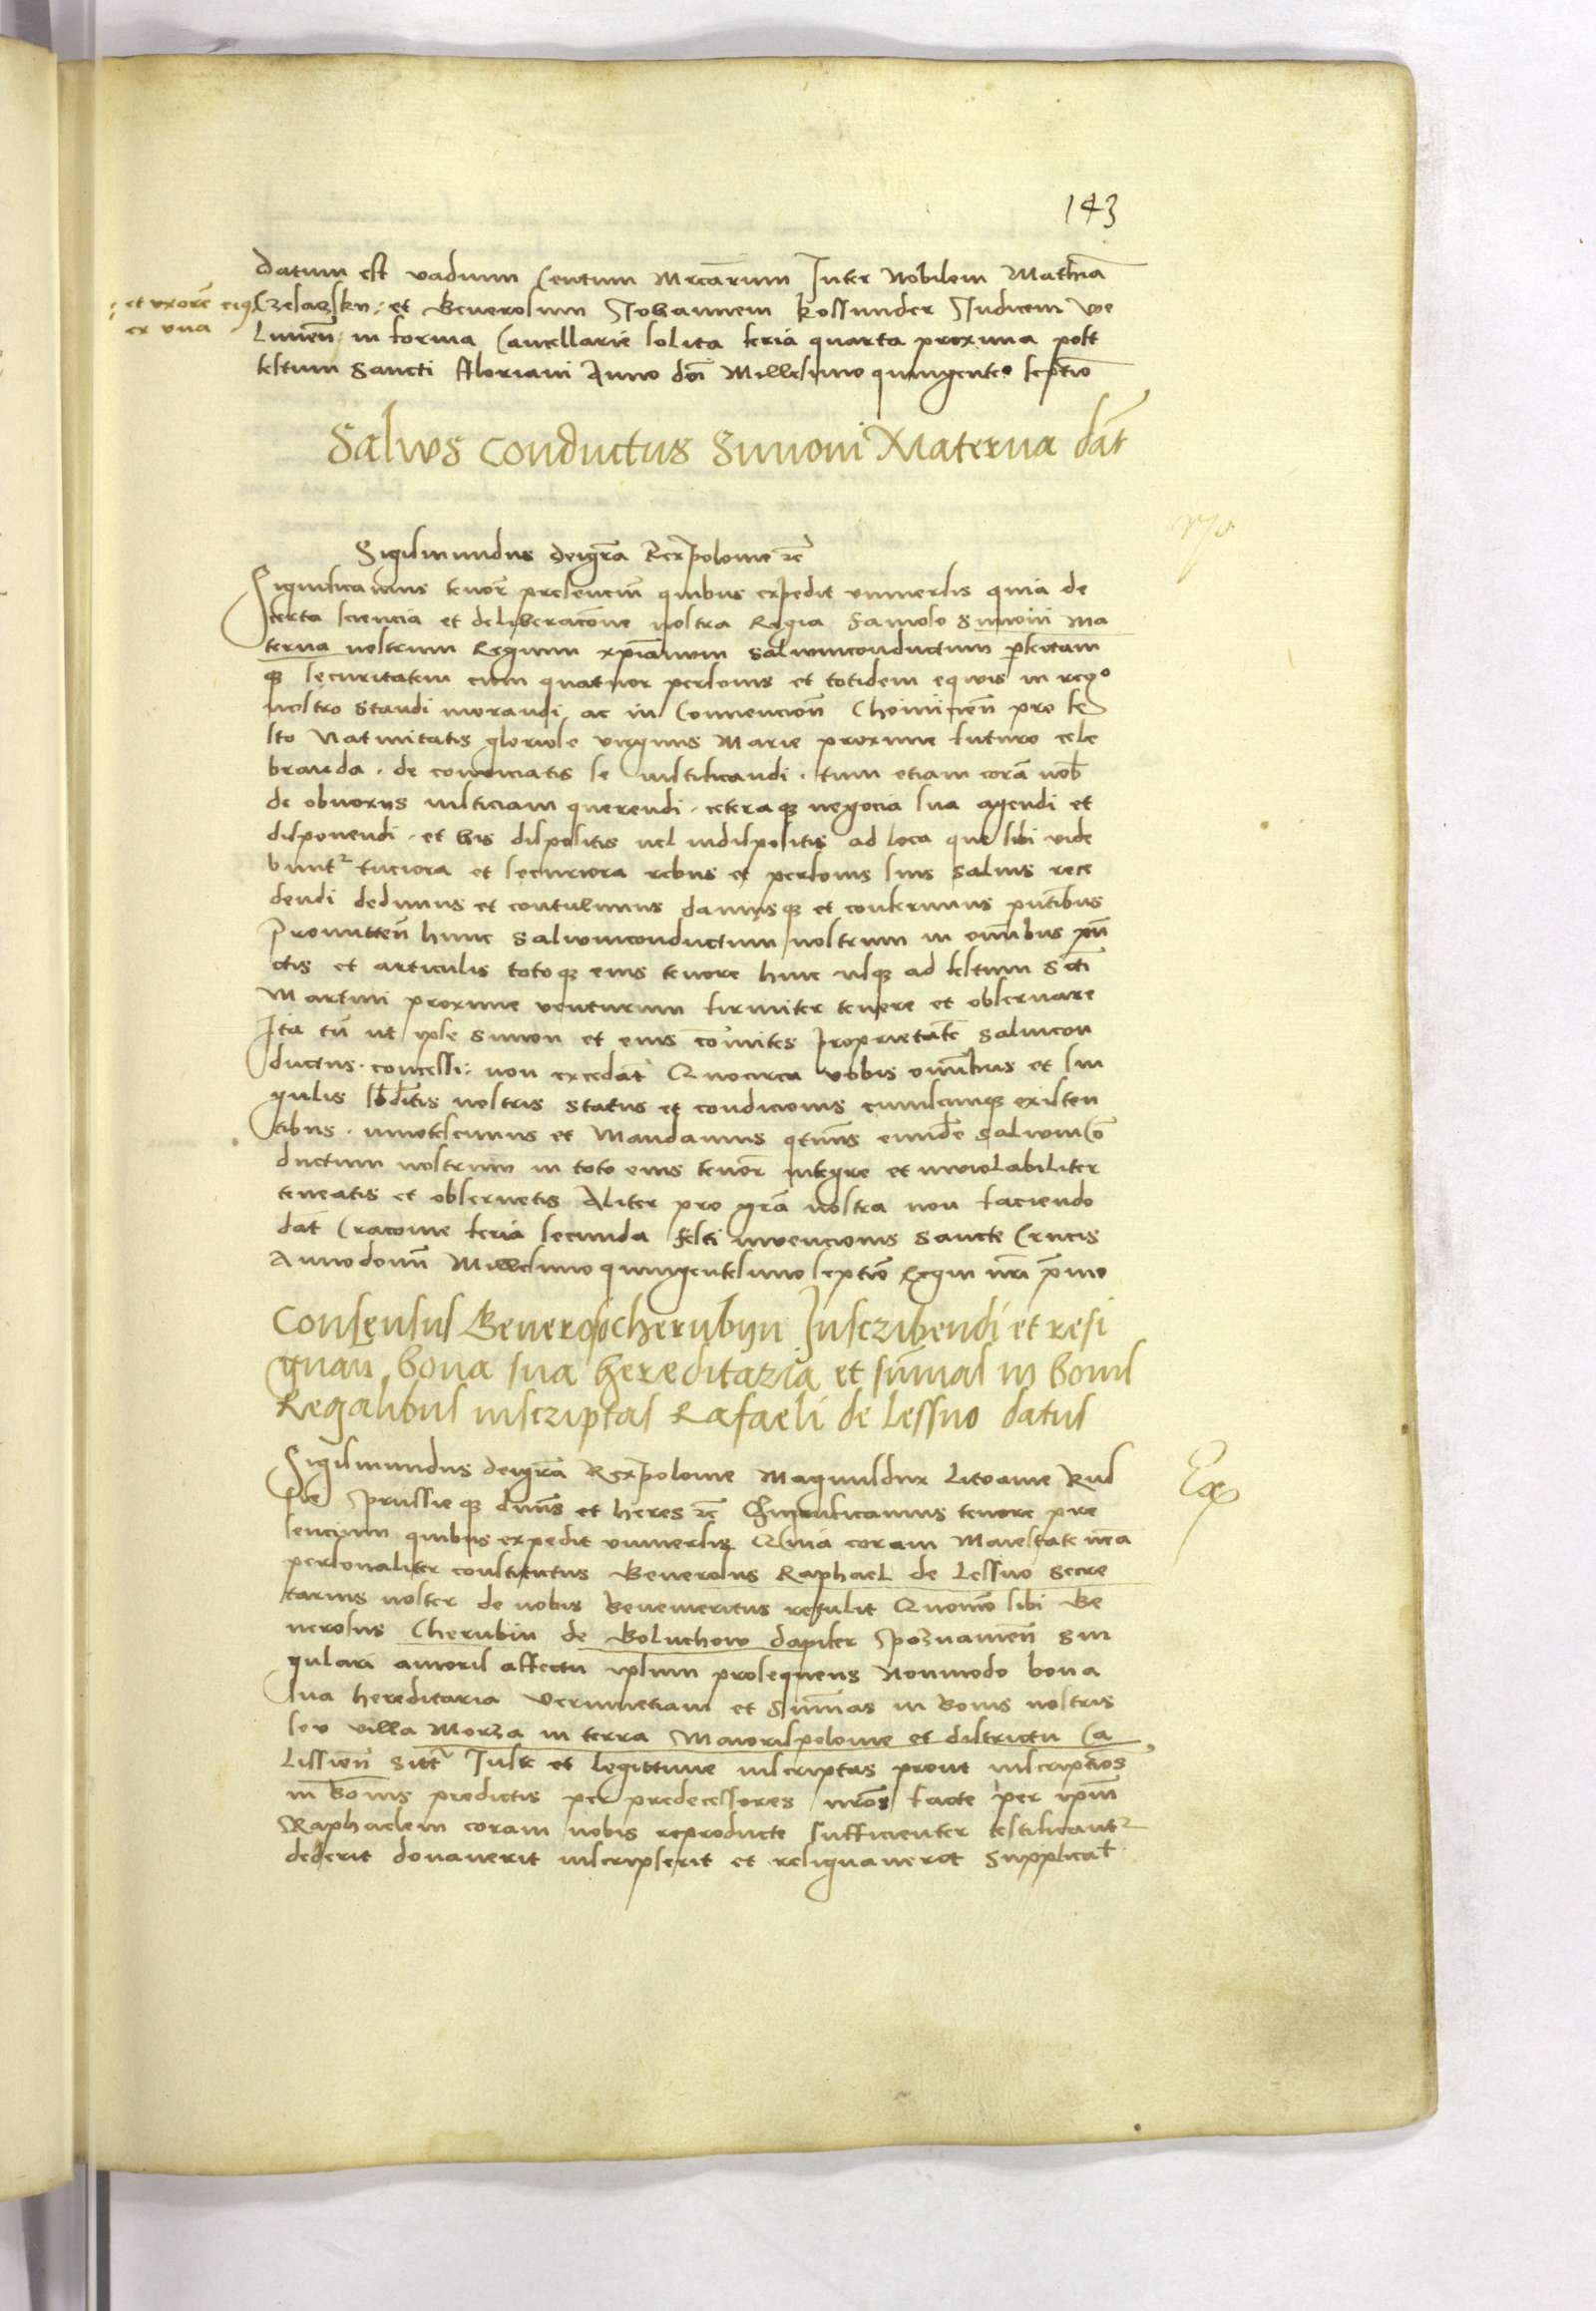 143
datum est vadium Centum Mrcarum Inter Nobilem Mathia
et uxore eiq
ex una
Czelaszky : et Generosum Johannem Kossunder Judicem we
lunen in forma Cancellarie solita feria quarta proxima post
festum Sancti floriani Anno doi Millesimo quingenteo septio
Salws Conductus Simoni Materna dat
Sigismundus deigra Rex polonie rc
Significamus tenor presencim quibus expedit universis quia de
certa sciencia et deliberacone nostra Regia famoso Simoni Ma
terna nostrum Regium xpianum Salwumconductum pfectam
q securitatem cum quatuor personis et totidem equis in rego
nostro Standi morandi ac in Convencion Choinicen pro fe
sto Nativitatis gloriose virginis Marie proxime futuro cele
branda . de conviciatis se iustificandi . tum etiam cora nob
de obnoxys iusticiam querendi . ceteraq negocia sua agendi et
disponendi . et his dispositis vel indispositis ad loca que sibi vide
buntr tuciora et securiora rebus et personis suis salvis rece
dendi dedimus et contulimus damusq et conferimus pntibus
Promitten hunc Salwumconductum nostrum in omibus pun
ctis et articulis totoq eius tenore hinc usq ad festum Scti
Martini proxime venturum firmiter tenere et observare
Ita tn ut ipse Simon et eius comites proprietate Salvicon
ductus . concessi : non excedat Quocirca vobis omibus et sin
gulis sbditis nostris status et condicionis cuiuscunq existen
tibus . innotescimus et Mandamus qtinus eunde Salwumco
ductum nostrum in toto eius tenor integre et inviolabiliter
teneatis et observetis Aliter pro gra nostra non faciendo
dat Cracovie feria secunda festi invencionis Sancte Crucis
Anno domi Millesimo quingentesimo septio Regni nri primo
Consensus Generoso Cherubyn Inscribendi et resi
gnan bona sua hereditaria et sumas in bonis
Regalibus inscriptas Rafaeli de Lessno datus
Sigismundus deigra Rex polonie Magnusdux Litvanie Rus
sie prussie q dnus et heres rc Significamus tenore pre
sencium quibus expedit universis Quia coram Maiestate nra
personaliter constitutus Generosus Raphael de Lessno Secre
tarius noster de nobis benemeritus retulit Quomo sibi Ge
nerosus Cherubin de Goluchow dapifer poznanien Sin
gulari amoris affectu ipsum prosequens Nonmodo bona
sua hereditaria verumetiam et Sumas in bonis nostris
seu villa Morza in terra Maiorispolonie et districtu Ca
lissien Sittr Iuste et legittime inscriptas prout inscriptios
in bonis predictis per predecessores nros facte per ipm
Raphaelem coram nobis reproducte sufficienter testificantr
dederit donaverit inscripserit et resignaverit Supplicat